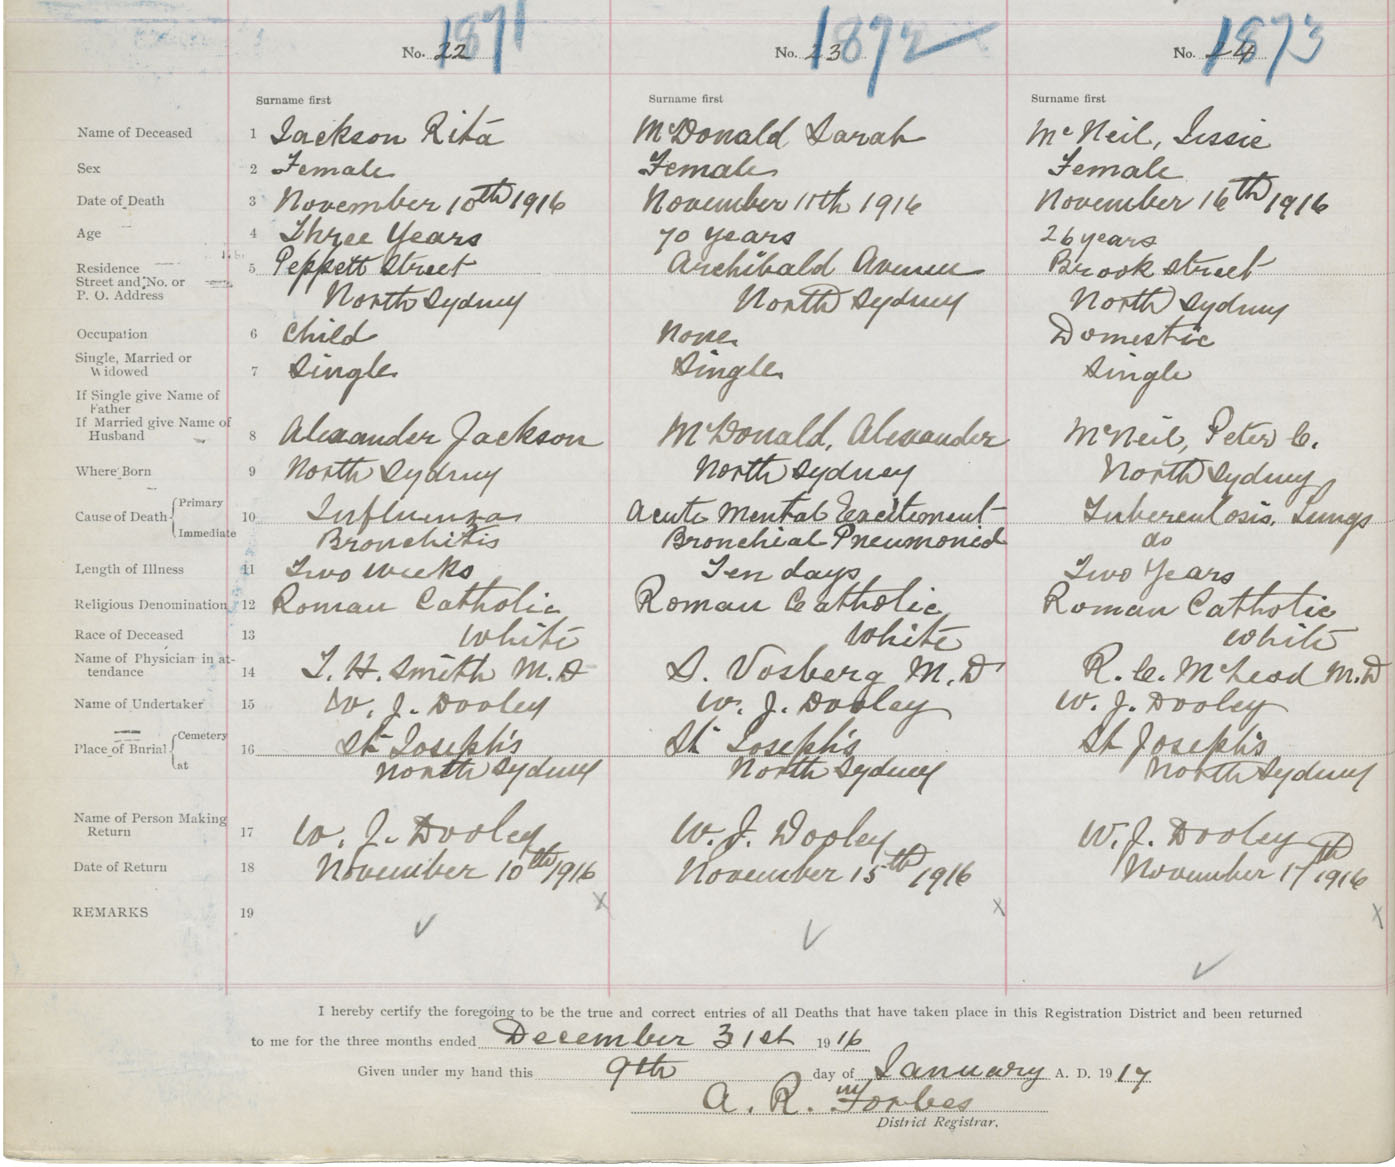 1871 1872 1873
No. 22 No. 23 No. 24
Surname first Surname first Surname first
Name of Deceased 1 Jackson Rita McDonald Sarah McNeil, Jessie
Sex 2 Female Female Female
Date of Death 3 November 10th 1916 November 11th 1916 November 16th 1916
Age 4 Three Years 70 years 26 years
Residence 5 Peppett Street Archibald Avenue Brook street
Street and No. or
P. O. Address North Sydney North Sydney North Sydney
Occupation 6 Child None Domestic
Single, Married or
Widowed 7 Single Single Single
If Single give Name of
Father
If Married give Name of
Husband 8 Alexander Jackson McDonald, Alexander McNeil, Peter C.
Where Born 9 North Sydney North Sydney North Sydney
Primary
Cause of Death 10 Influenza Acute Mental Excitement Tuberculosis, Lungs
Immediate Bronchitis Bronchial Pneumonia do
Length of Illness 11 Two weeks Ten days Two Years
Religious Denomination 12 Roman Catholic Roman Catholic Roman Catholic
Race of Deceased 13 White White White
Name of Physician in at-
tendance 14 T. H. Smith M.D S. Vosberg M.D R. C. McLeod M.D
Name of Undertaker 15 W. J. Dooley W. J. Dooley W. J. Dooley
Cemetery
Place of Burial 16 St Joseph's St Joseph's St Joseph's
at North Sydney North Sydney North Sydney
Name of Person Making
Return 17 W. J. Dooley W. J. Dooley W. J. Dooley
Date of Return 18 November 10th 1916 November 15th 1916 November 17th 1916
x x x
REMARKS 19
I hereby certify the foregoing to be the true and correct entries of all Deaths that have taken place in this Registration District and been returned
to me for the three months ended December 31st 1916
Given under my hand this 9th day of January A. D. 1917
A. R. Forbes
District Registrar.